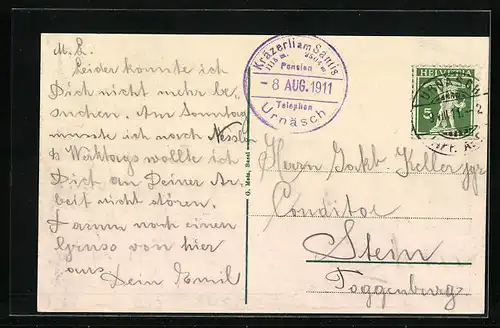 M. L.
Leider konnte ich
Dich nicht mehr be-
suchen. Am Sonntag
musste ich nach Nesslau
& Werktags wollte ich
Dich an Deiner Ar-
beit nicht stören.
Darum noch einen
Gruss von hier
aus Dein Emil
G. Metz, Basel
Kräzerli am Säntis
1115 m. 2504 m.
Pension
- 8 AUG. 1911
Telephon
Urnäsch
HELVETIA
5
Herrn Jakb Keller jgr
Conditor
Stein
Toggenburg